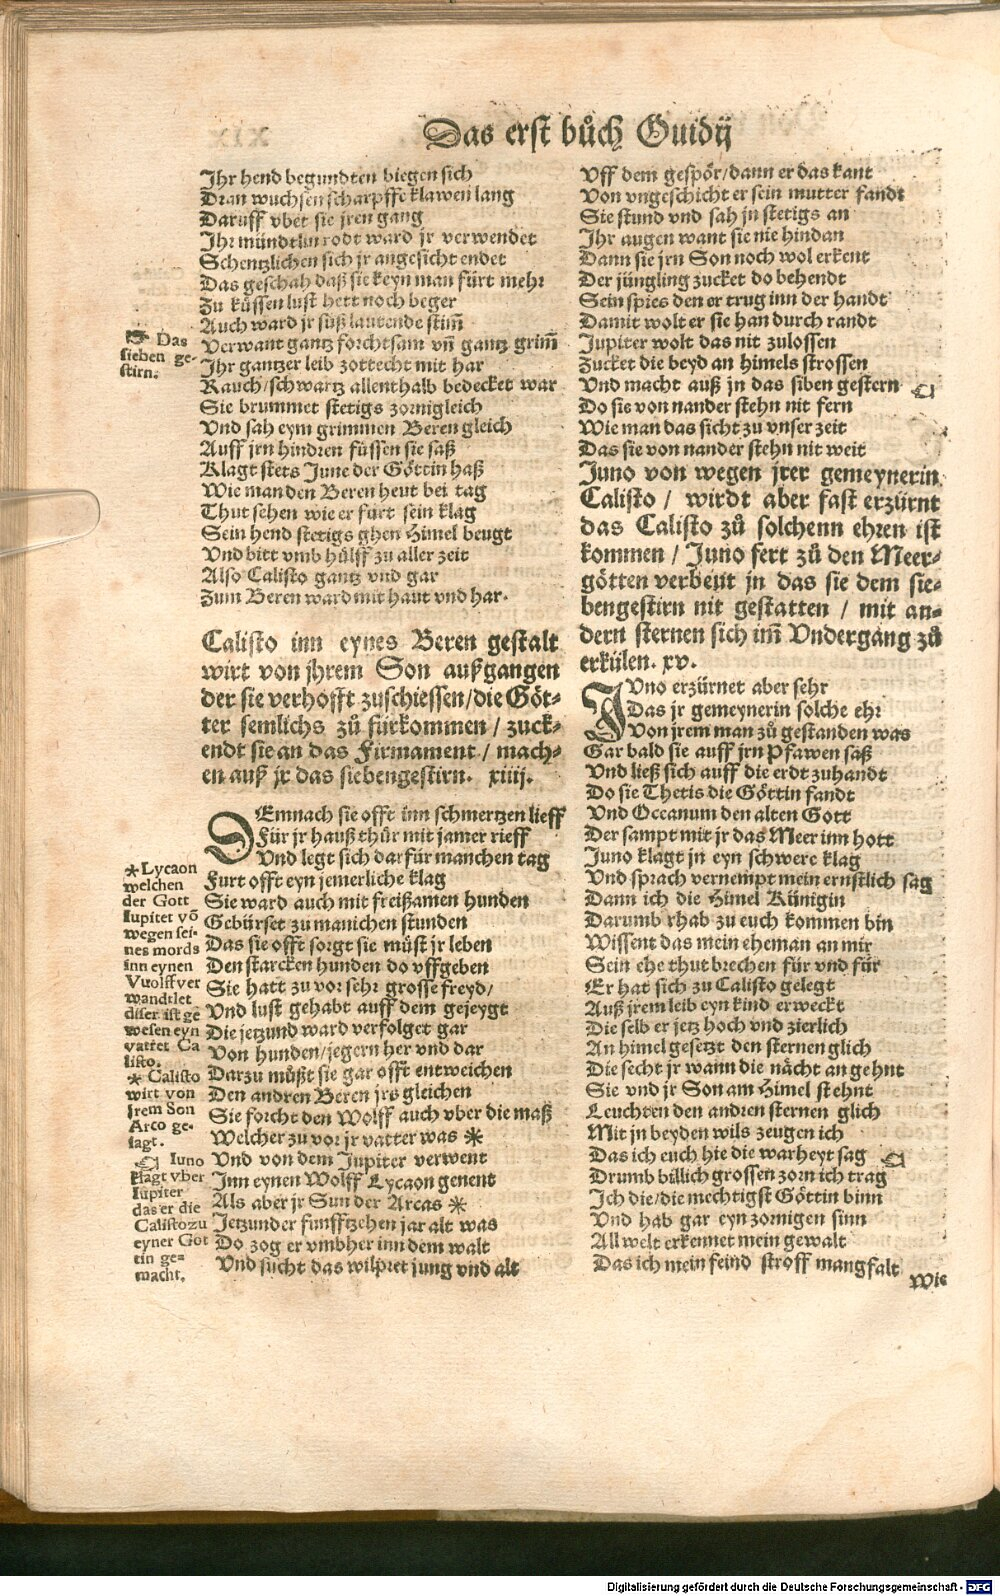 Das erst bůch Ouidij
Ihr hend begundten biegen sich
Dran wuchsen scharpffe klawen lang
Daruff vbet sie jren gang
Ihr mündtlin rodt ward jr verwendet
Schentzlichen sich jr angesicht endet
Das geschah daß sie keyn man fürt mehr
Zu küssen lust hett noch beger
Auch ward jr süß lautende stim̃
Verwant gantz forchtsam vñ gantz grim̃
Ihr gantzer leib zottecht mit har
Rauch/schwartz allenthalb bedecket war
Sie brummet stetigs zornigleich
Vnd sah eym grimmen Beren gleich
Auff jrn hindren füssen sie saß
Klagt stets June der Göttin haß
Wie man den Beren heut bei tag
Thut sehen wie er fürt sein klag
Sein hend stetigs ghen Himel beugt
Vnd bitt vmb hülff zu aller zeit
Also Calisto gantz vnd gar
Zum Beren ward mit haut vnd har.
☞ Das
sieben ge-
stirn.
Calisto inn eynes Beren gestalt
wirt von jhrem Son außgangen
der sie verhofft zuschiessen/die Göt-
ter semlichs zů fürkommen / zuck-
endt sie an das Firmament / mach-
en auß jr das siebengestirn. xiiij.
DEmnach sie offt inn schmertzen lieff
Für jr hauß thür mit jamer rieff
Vnd legt sich darfür manchen tag
Furt offt eyn jemerliche klag
Sie ward auch mit freißamen hunden
Gebürset zu manichen stunden
Das sie offt sorgt sie müst jr leben
Den starcken hunden do vffgeben
Sie hatt zu vor sehr grosse freyd/
Vnd lust gehabt auff dem gejeygt
Die jetzund ward verfolget gar
Von hunden/jegern her vnd dar
Darzu müßt sie gar offt entweichen
Den andren Beren jrs gleichen
Sie forcht den Wolff auch vber die maß
Welcher zu vor jr vatter was *
Vnd von dem Jupiter verwent
Inn eynen Wolff Lycaon genent
Als aber jr Sun der Arcas *
Jetzunder funfftzehen jar alt was
Do zog er vmbher inn dem walt
Vnd sucht das wilpret jung vnd alt
*Lycaon
welchen
der Gott
Iupitet võ
wegen sei-
nes mords
inn eynen
Vuolff ver
wandtlet
diser ist ge
wesen eyn
vattet Ca
listo.
* Calisto
wirt von
jrem Son
Arco ge-
iagt.
☜ Iuno
klagt vber
Iupiter
das er die
Calisto zu
eyner Got
tin ge-
macht.
Vff dem gespör/dann er das kant
Von vngeschicht er sein mutter fandt
Sie stund vnd sah jn stetigs an
Ihr augen want sie nie hindan
Dann sie jrn Son noch wol erkent
Der jüngling zucket do behendt
Sein spies den er trug inn der handt
Damit wolt er sie han durch randt
Jupiter wolt das nit zulossen
Zucket die beyd an himels strossen
Vnd macht auß jn das siben gestern ☜
Do sie von nander stehn nit fern
Wie man das sicht zu vnser zeit
Das sie von nander stehn nit weit
Juno von wegen jrer gemeynerin
Calisto / wirdt aber fast erzürnt
das Calisto zů solchenn ehren ist
kommen / Juno fert zů den Meer-
götten verbeut jn das sie dem sie-
bengestirn nit gestatten / mit an-
dern sternen sich im̃ Vndergang zů
erkülen. xv.
IVno erzürnet aber sehr
Das jr gemeynerin solche ehr
Von jrem man zů gestanden was
Gar bald sie auff jrn Pfawen saß
Vnd ließ sich auff die erdt zuhandt
Do sie Thetis die Göttin fandt
Vnd Occeanum den alten Gott
Der sampt mit jr das Meer inn hott
Juno klagt jn eyn schwere klag
Vnd sprach vernempt mein ernstlich sag
Dann ich die Himel Künigin
Darumb rhab zu euch kommen bin
Wissent das mein eheman an mir
Sein ehe thut brechen für vnd für
Er hat sich zu Calisto gelegt
Auß jrem leib eyn kind erweckt
Die selb er jetz hoch vnd zierlich
An himel gesetzt den sternen glich
Die secht jr wann die nächt an gehnt
Sie vnd jr Son am Himel stehnt
Leuchten den andren sternen glich
Mit jn beyden wils zeugen ich
Das ich euch hie die warheyt sag ☜
Drumb billich grossen zorn ich trag
Ich die/die mechtigst Göttin binn
Vnd hab gar eyn zornigen sinn
All welt erkennet mein gewalt
Das ich mein feind stroff mangfalt
Wie
Digitalisierung gefördert durch die Deutsche Forschungsgemeinschaft - DFG